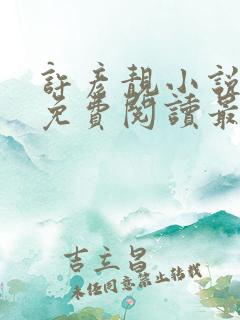 許彥靚小說
免費閱讀最
吉立昌
未经同意禁止转载